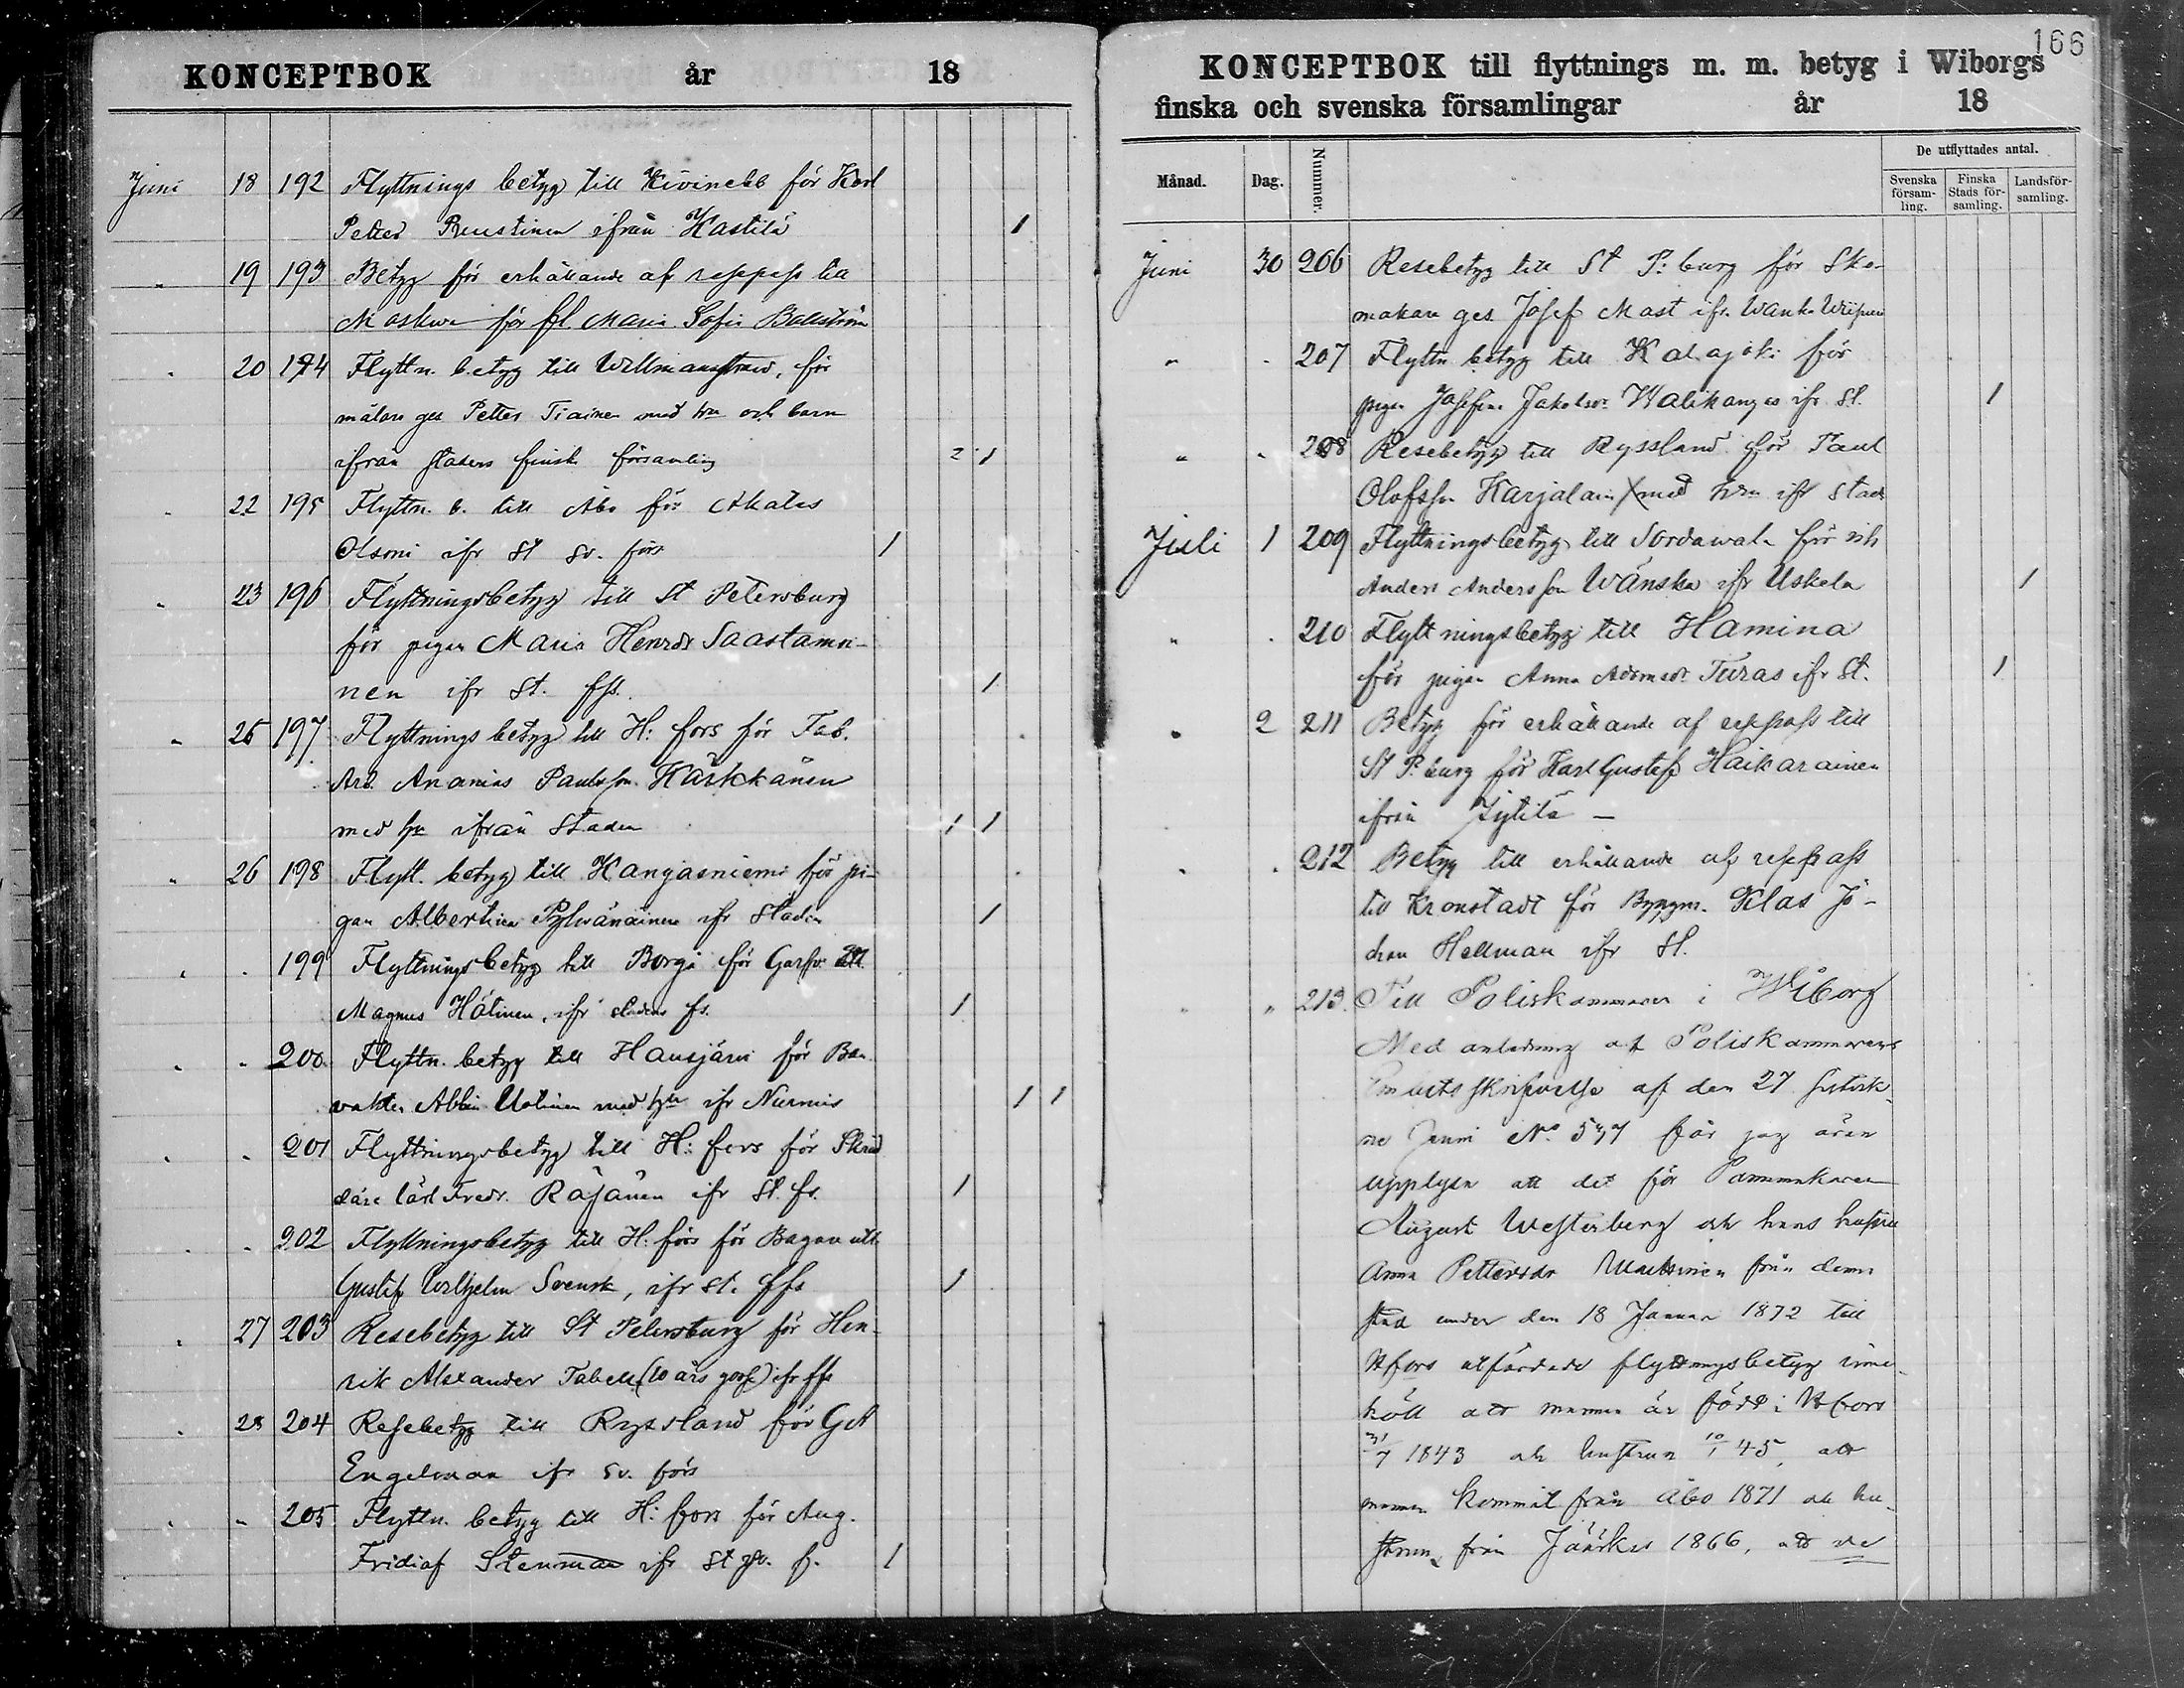 KONCEPTBOK år 18
Juni 18 192 Flyttnings betyg till Kivinebb för Karl
Petter Ruustinen ifrån Hastilä 1
" 19 193 Betyg för erhållande af respass till
Moskwa för frl. Maria Sofia Bollström
" 20 194 Flyttn. betyg till Willmanstrand, för
målare ges Petter Tiainen med hu och barn
ifrån stadens finska församling 2 1
" 22 195 Flyttn. b. till Åbo för
Olsoni ifr St sv. förs 1
" 23 196 Flyttningsbetyg till St Petersburg
för pigan Maria Henrdr Saastamoi-
nen ifr St. ffs. 1
" 25 197 Flyttnings betyg till H:fors för Fab.
Arb. Ananias Paulsson Härkkänen
med hu ifrån Staden 1 1
" 26 198 Flytt. betyg till Kangasniemi för pi-
gan Albertina Pylwänäinen ifr Staden 1
" " 199 Flyttningsbetyg till Borgå för Garfv.
Magnus Hälinen, ifr stadens fs. 1
" " 200 Flyttn. betyg till Hausjärvi för Ban
vakten Albin Uotinen med hu ifr Nurmis 1 1
" " 201 Flyttningsbetyg till H:fors för Skräd
dare lärl Fredr. Räsänen ifr St. fs. 1
" " 202 Flyttningsbetyg till H:fors för Bagare
Gustaf Wilhelm Svensk, ifr St. ffs 1
" 27 203 Resebetyg till St Petersburg för Hen-
rik Alexander Tabell (10 års gosse) ifr ffs
" 28 204 Resebetyg till Ryssland för
Engelman ifr sv. förs
" " 205 Flyttn. betyg till H:fors för Aug.
Fridiof Stenman ifr St sv. f. 1
166
KONCEPTBOK till flyttnings m. m. betyg i Wiborgs
finska och svenska församlingar år 18
Månad. Dag. Nummer. De utflyttades antal.
Svenska församling. Finska Stads församling. Landsförsamling.
Juni 30 206 Resebetyg till St P:burg för Sko-
makare ges. Josef Mast ifr. Wanha Wiipuri
" " 207 Flyttn betyg till Kalajoki för
pigan Josefina Jakobsdr Walikangas ifr St. 1
" " 208 Resebetyg till Ryssland för Paul
Olofsson Karjalain med hu ifr Stad
Juli 1 209 Flyttningsbetyg till Sordawala för
Anders Andersson Wänskä ifr Uskela 1
" " 210 Flyttningsbetyg till Hamina
för pigan Anna Adamsdr Turas ifr St. 1
" 2 211 Betyg för erhållande af respass till
St P:burg för Karl Gustaf Haikarainen
ifrån
" " 212 Betyg till erhållande af respass
till Kronstadt för Byggm. Klas Jo-
han Hellman ifr St.
" " 213. Till Poliskammaren i Wiborg
Med anledning af Poliskammarens
Embets skrifvelse af den 27 sistvik-
ne Juni No 577 får jag äran
upplysa att det för
August Westerberg och hans hustru
Anna Pettersdr från denna
stad under den 18 Januar 1872 till
Hfors utfärdade flyttningsbetyg inne
höll att mannen är född i Hfors
1843 och hustrun 10/1 45, att
mannen kommit från Åbo 1871 och hu-
strun från Jääskis 1866, att de